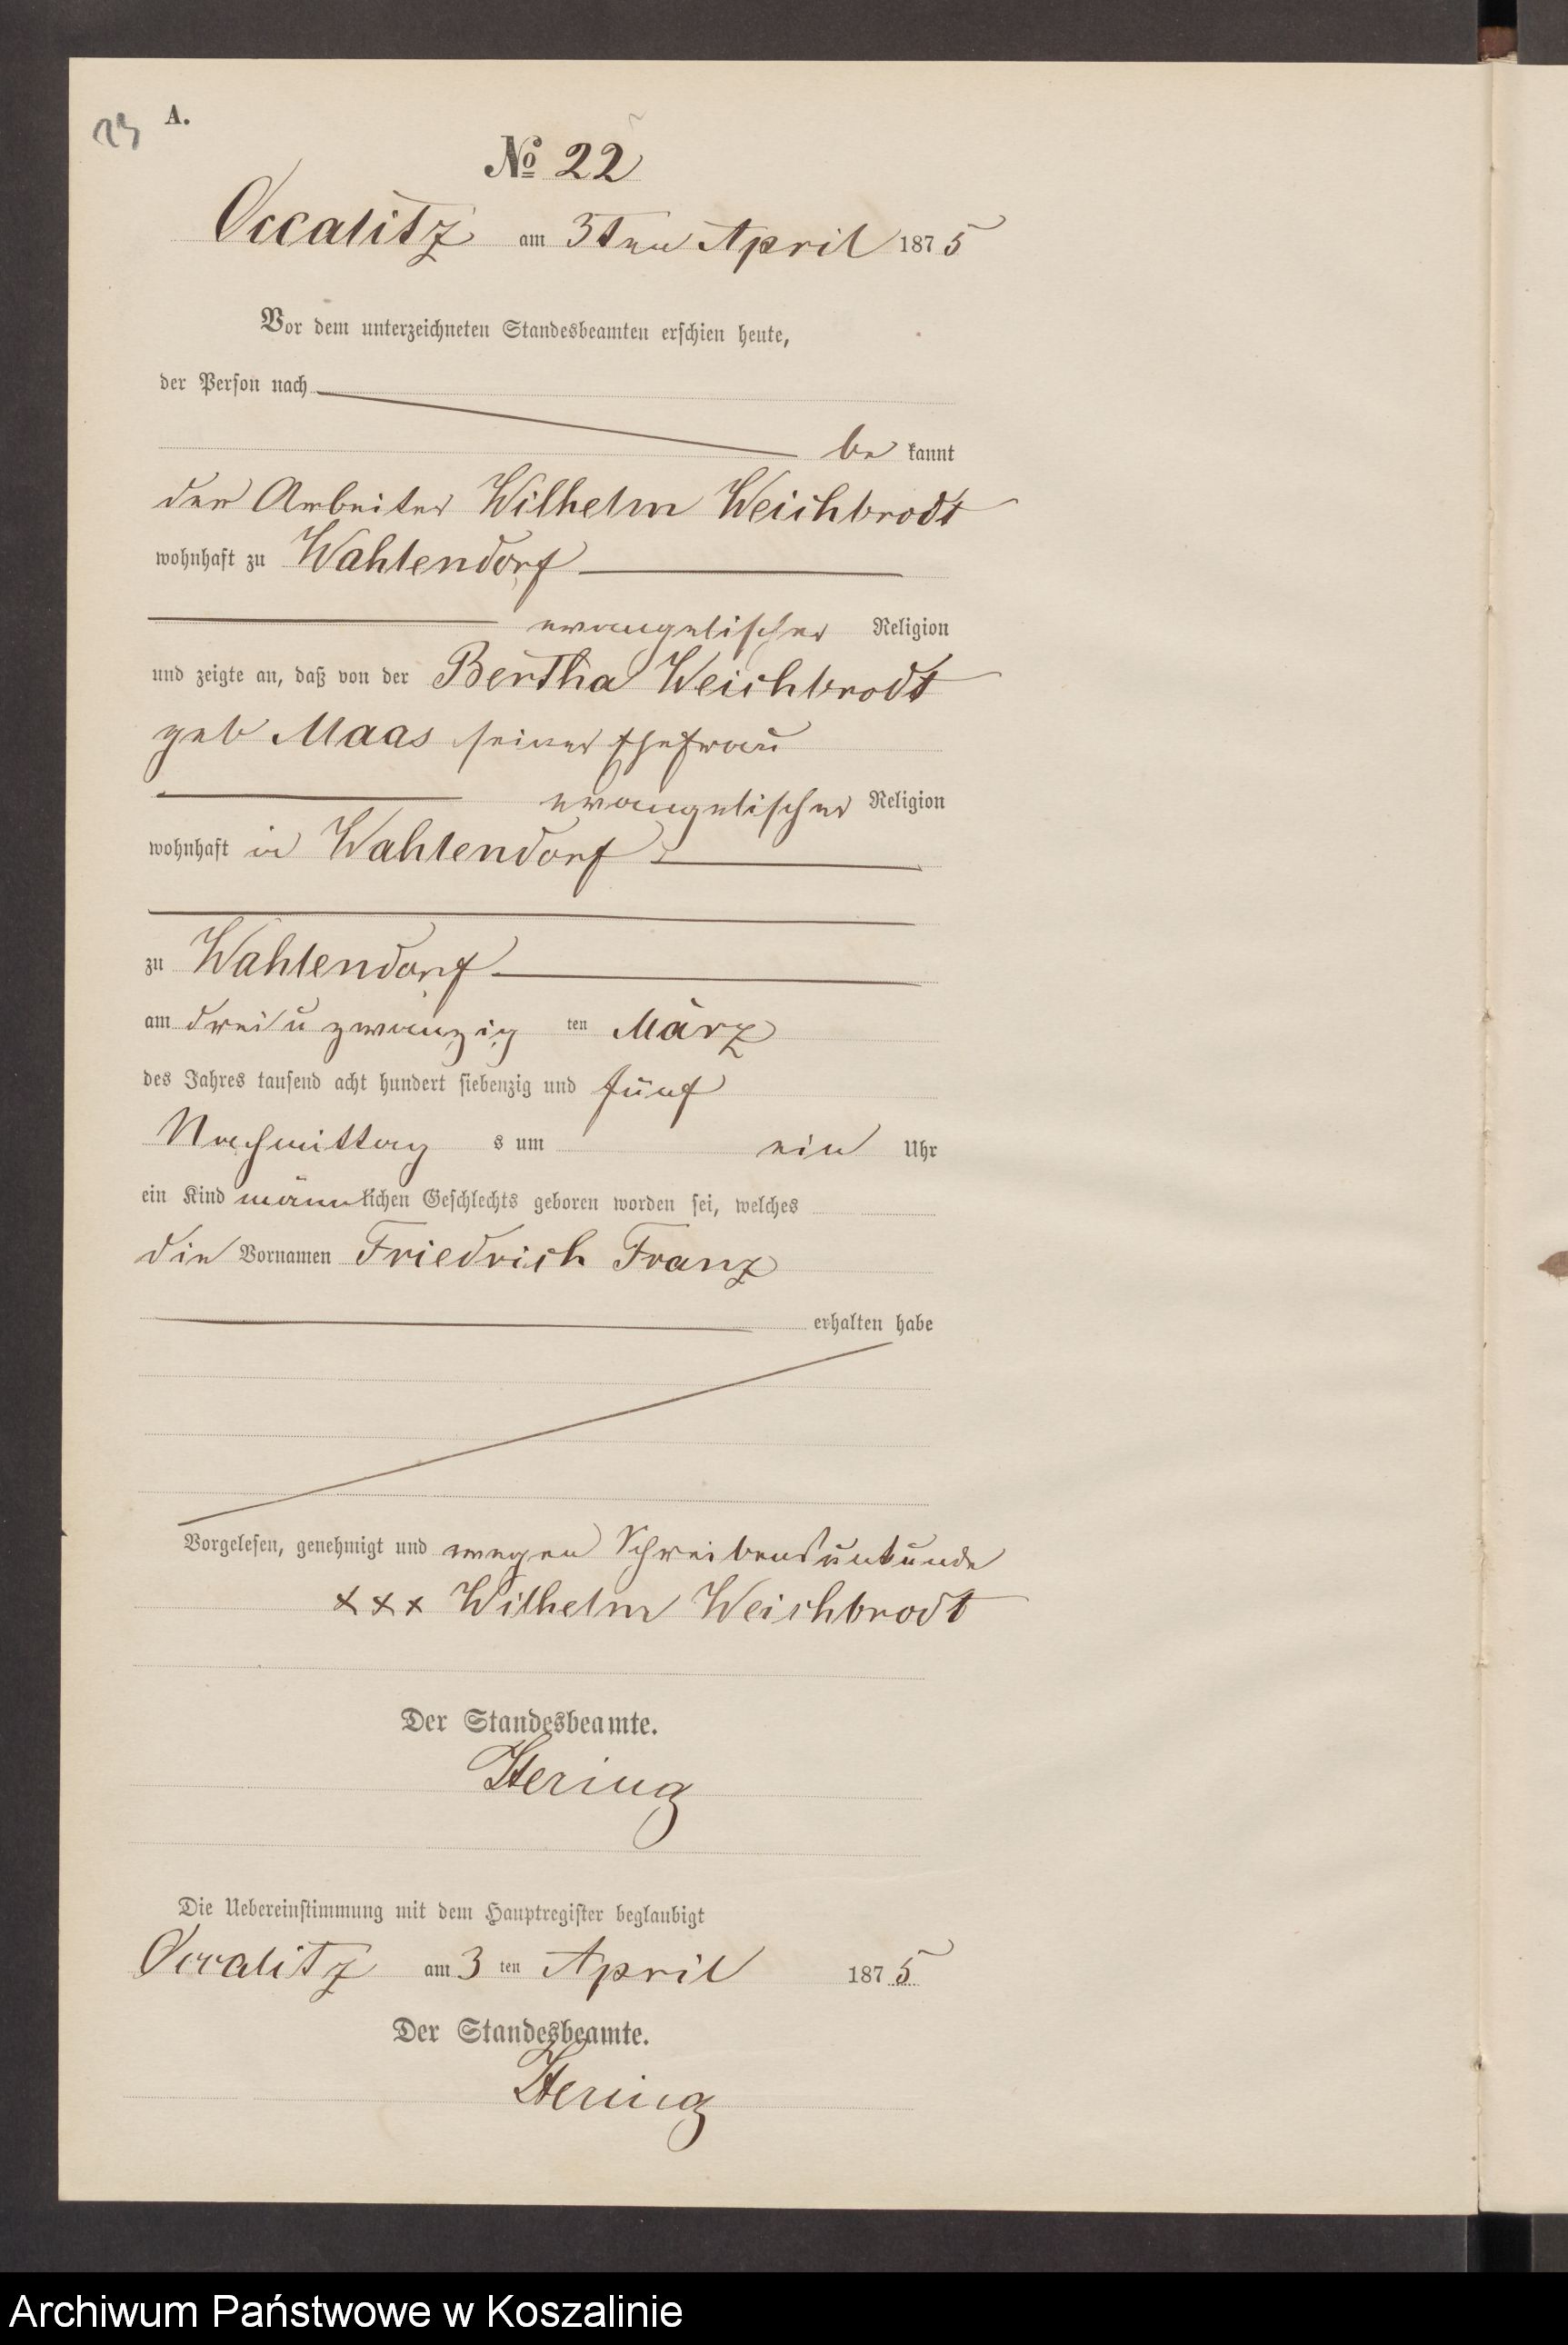 23
A.
№ 22
Occalitz am 3ten April 1875
Vor dem unterzeichneten Standesbeamten erschien heute,
der Person nach
be kannt
der Arbeiter Wilhelm Weichbrodt
wohnhaft zu Wahlendorf
evangelischer Religion
und zeigte an, daß von der Bertha Weichbrodt
geb Maas seiner Ehefrau
evangelischer Religion
wohnhaft in Wahlendorf
zu Wahlendorf
am drei u zwanzig ten März
des Jahres tausend acht hundert siebenzig und fünf
Nachmittag s um ein Uhr
ein Kind männlichen Geschlechts geboren worden sei, welches
die Vornamen Friedrich Franz
erhalten habe
Vorgelesen, genehmigt und wegen Schreibensunkunde
xxx Wilhelm Weichbrodt
Der Standesbeamte.
Hering
Die Uebereinstimmung mit dem Hauptregister beglaubigt
Occalitz am 3 ten April 1875
Der Standesbeamte.
Hering
Archiwum Państwowe w Koszalinie